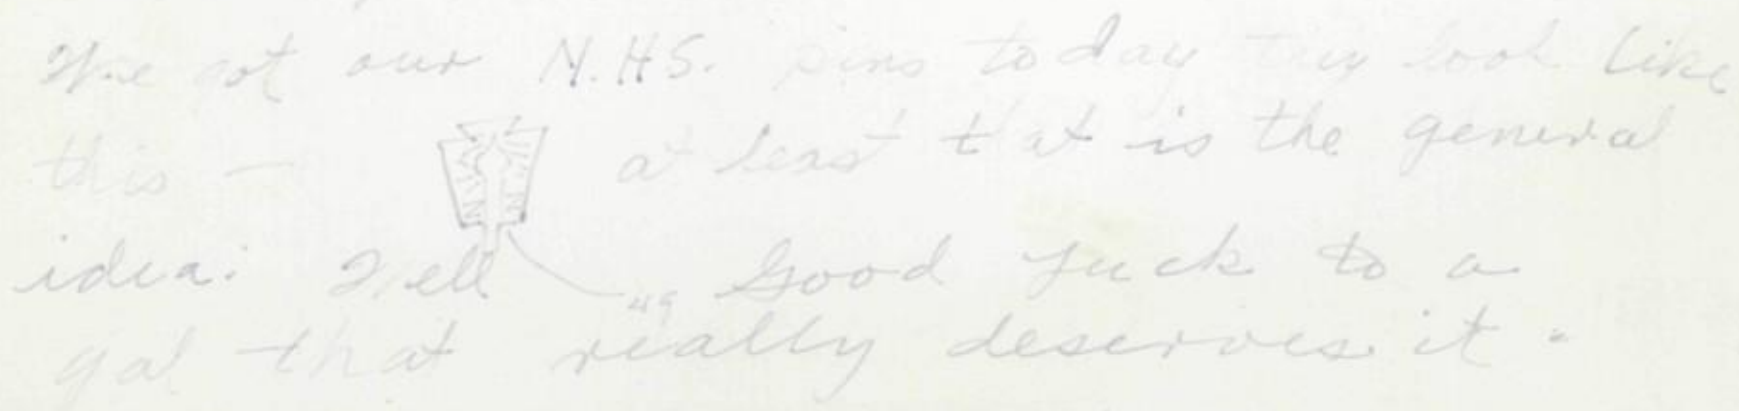 We got our N.H.S. pins today they look like
this — at least that is the general
idea. Well Good luck to a
49
gal that really deserves it.